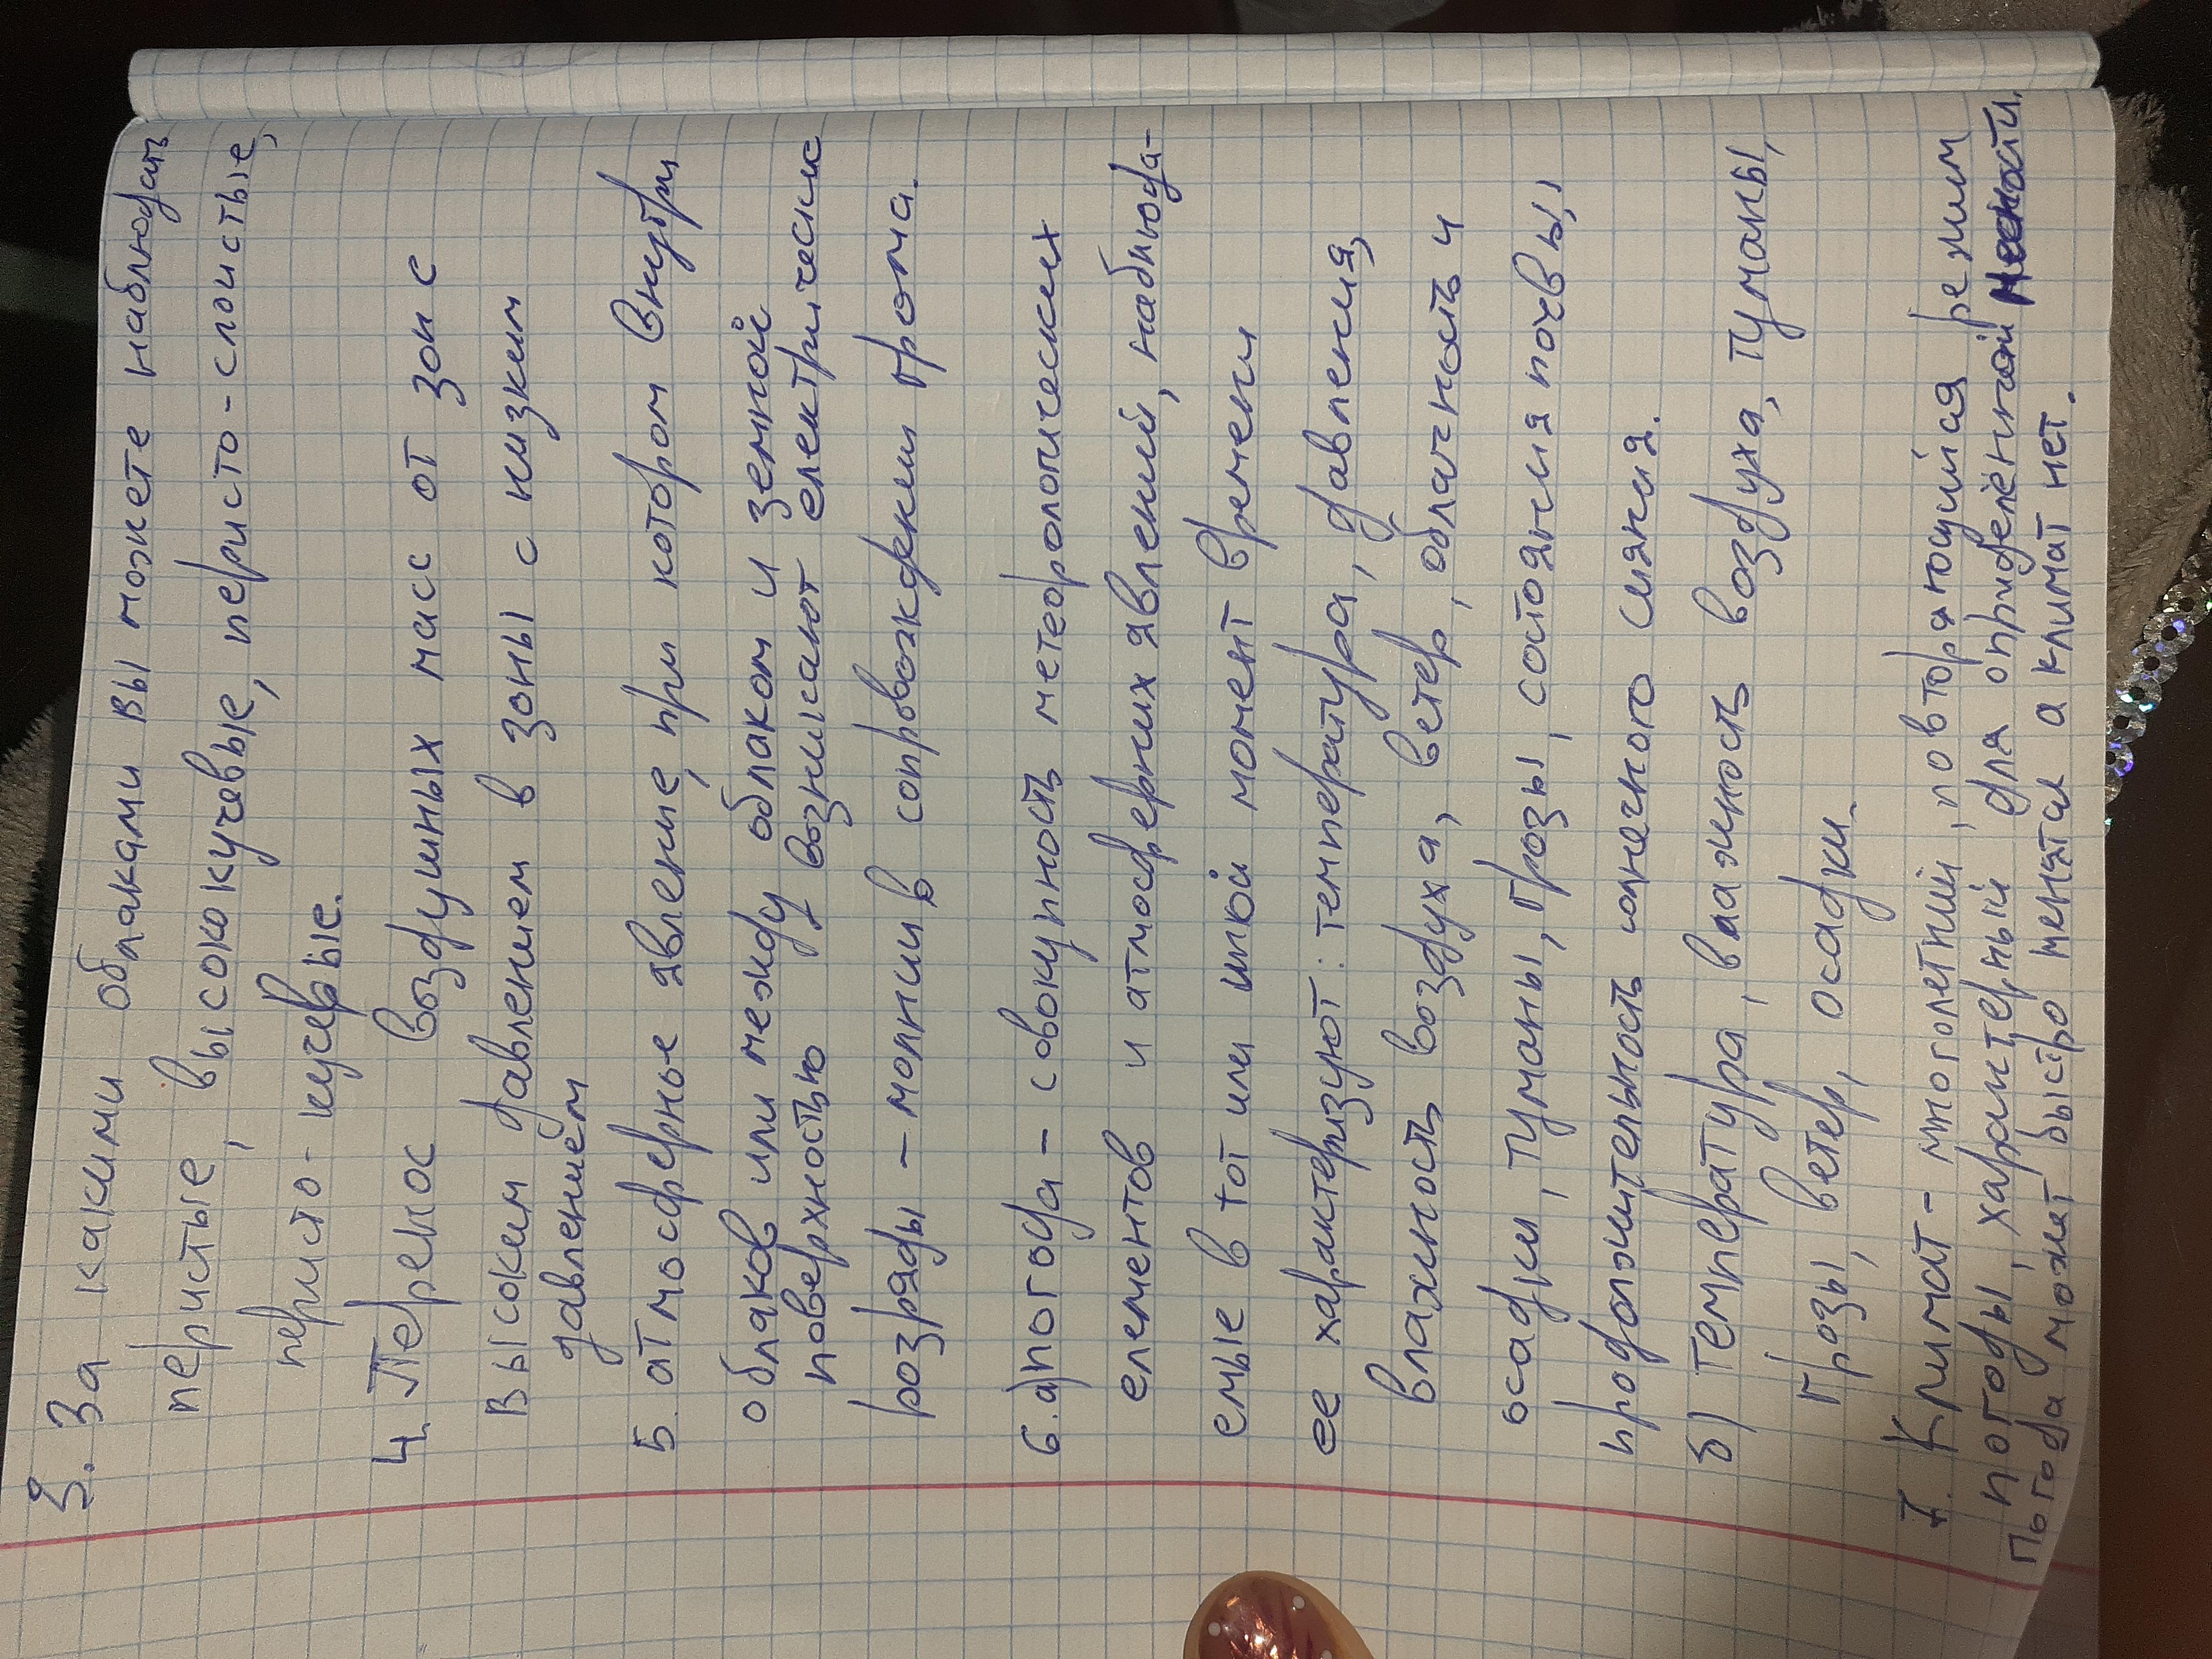 3. За какими облаками вы можете наблюдать
перистые, высококучевые, перисто-слоистые,
перисто-кучевые.
4. Перенос воздушных масс от зон с
высоким давлением в зоны с низким
давлением
5. атмосферные явление, при котором внутри
облаков или между облаком и земной
поверхностью возникают електрические
розряды - молнии в сопровождении грома.
6. а) погода - совокупность метеорологических
елементов и атмосферних явлений, наблюда-
емые в тот или иной момент времени
ее характеризуют: температура, давления,
влажность воздуха, ветер, облачность и
осадки, туманы, грозы, состояния почвы,
продолжительность солнечного сияния.
б) температура, влажность воздуха, туманы,
грозы, ветер, осадки.
7. Климат - многолетний, повторяющийся режим
погоды, характерный для определённой местности.
Погода может быстро менятся а климат нет.